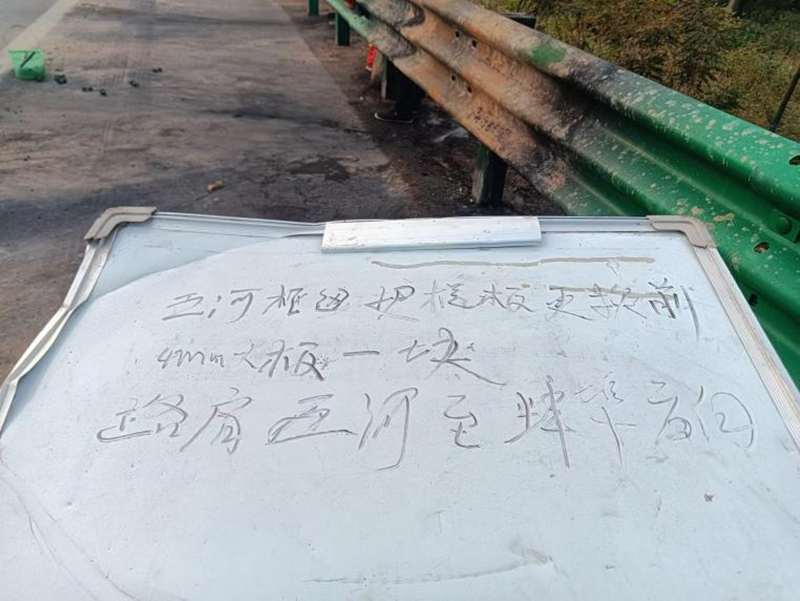 五河枢纽护栏板更换前
4mm大板一块
路肩五河至蚌埠方向